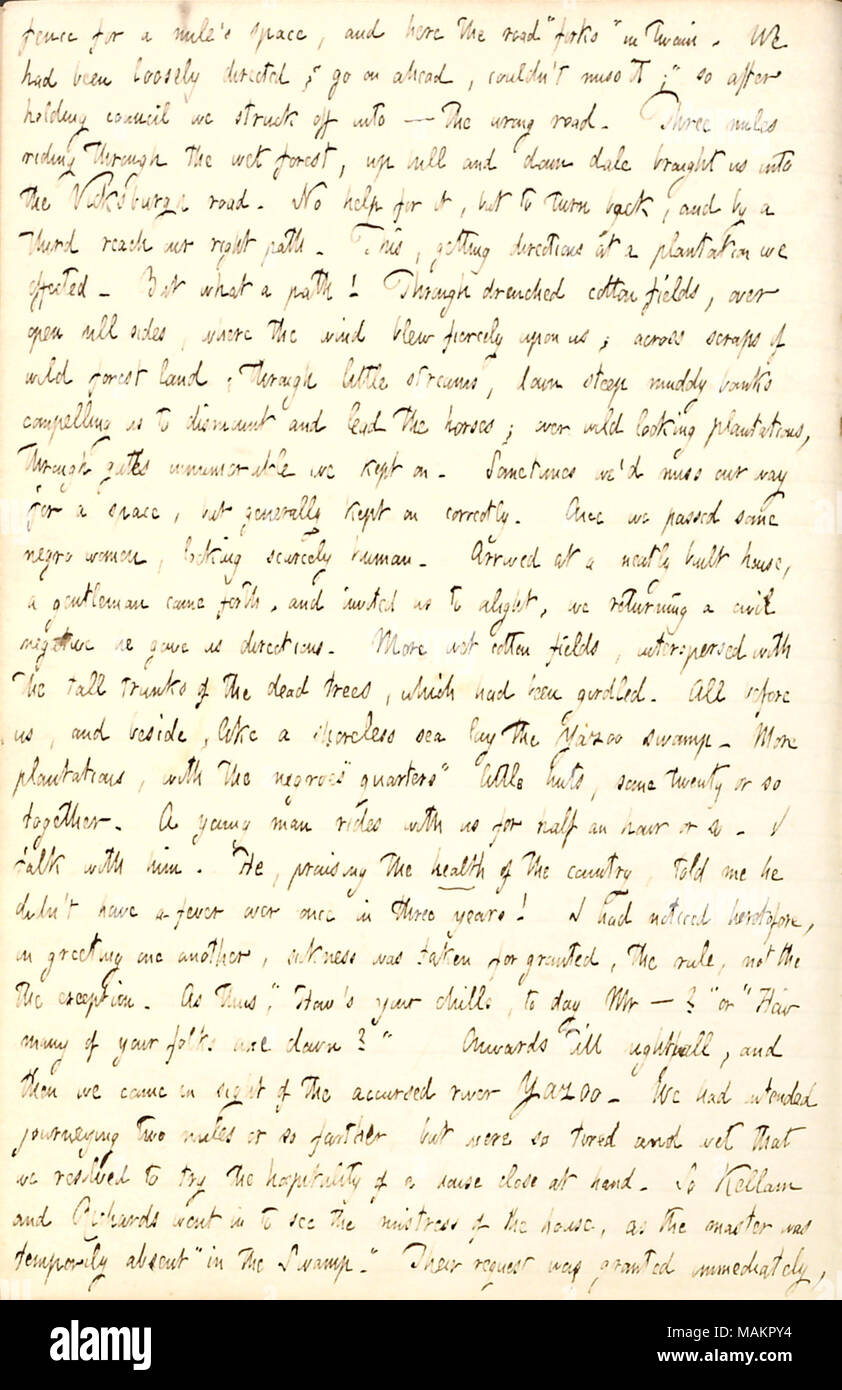 fence for a mile's space, and here the road "forks" in twain. We
had been loosely directed, "go on ahead, couldn't miss it;" so after
holding council we struck off into — the wrong road. Three miles
riding through the wet forest, up hill and down dale brought us into
the Vicksburgh road. No help for it, but to turn back, and by a
third reach our right path. This, getting directions at a plantation we
effected. But what a path! Through drenched cotton fields, over
open hill sides, where the wind blew fiercely upon us, across scraps of
wild forest land, through little streams, down steep muddy banks
compelling us to dismount and lead the horses; over wild looking plantations,
through gates innumerable we kept on. Sometimes we'd miss our way
for a space, but generally kept on correctly. Once we passed some
negro women, looking scarcely human. Arrived at a neatly built house,
a gentleman came forth, and invited us to alight, we returning a civil
negative he gave us directions. More wet cotton fields, interspersed with
the tall trunks of the dead trees, which had been girdled. All before
us, and beside, like a shoreless sea lay the Yazoo swamp. More
plantations, with the negroes "quarters" little huts, some twenty or so
together. A young man rides with us for half an hour or so. I
talk with him. He, praising the health of the country, told me he
didn't have a fever over once in three years! I had noticed heretofore,
in greeting one another, sickness was taken for granted, the rule, not the
the exception. As thus, "How's your chills, to day Mr — ?" or "How
many of your folks are down?" Onwards till nightfall, and
then we came in sight of the accursed river Yazoo. We had intended
journeying two miles or so farther but were so tired and wet that
we resolved to try the hospitality of a house close at hand. So Kellam
and Richards went in to see the mistress of the house, as the master was
temporily absent "in the Swamp." Their request was granted immediately,
alamy
Image ID: MAKPY4
www.alamy.com